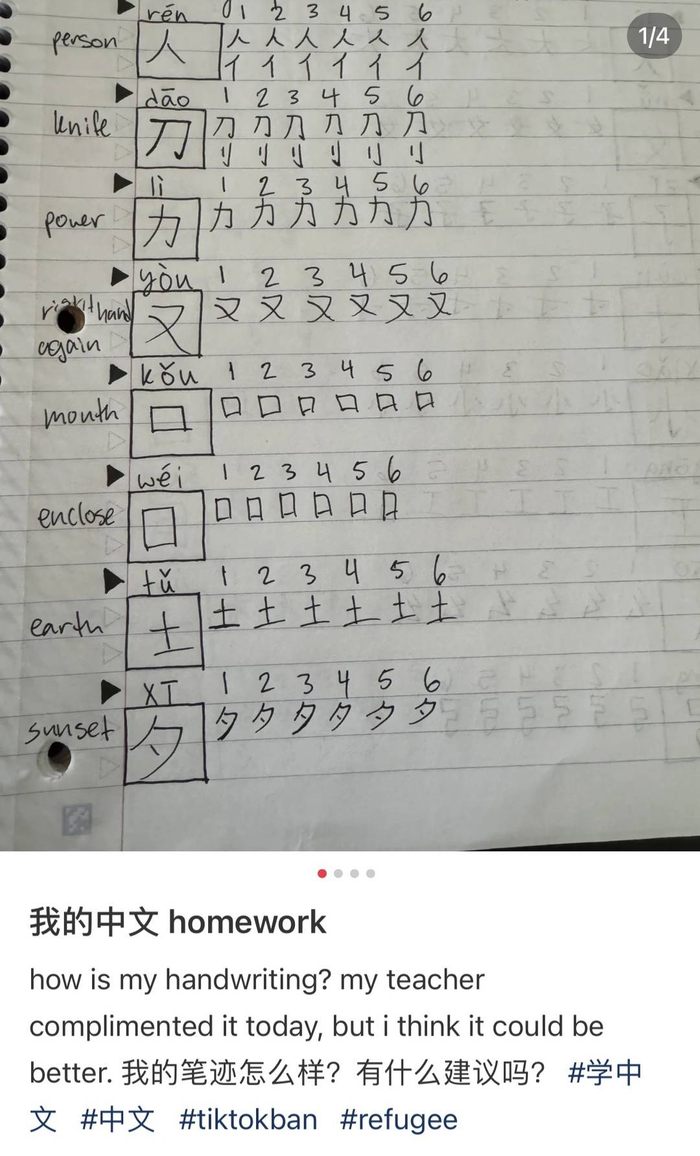 1/4
rén 0 1 2 3 4 5 6
person 人 人 人 人 人 人 人
亻 亻 亻 亻 亻 亻
dāo 1 2 3 4 5 6
knife 刀 刀 刀 刀 刀 刀 刀
刂 刂 刂 刂 刂 刂
lì 1 2 3 4 5 6
power 力 力 力 力 力 力 力
yòu 1 2 3 4 5 6
right hand 又 又 又 又 又 又 又
again
kǒu 1 2 3 4 5 6
mouth 口 口 口 口 口 口 口
wéi 1 2 3 4 5 6
enclose 囗 囗 囗 囗 囗 囗 囗
tǔ 1 2 3 4 5 6
earth 土 土 土 土 土 土 土
xī 1 2 3 4 5 6
sunset 夕 夕 夕 夕 夕 夕 夕
我的中文 homework
how is my handwriting? my teacher
complimented it today, but i think it could be
better. 我的笔迹怎么样？有什么建议吗？ #学中
文 #中文 #tiktokban #refugee